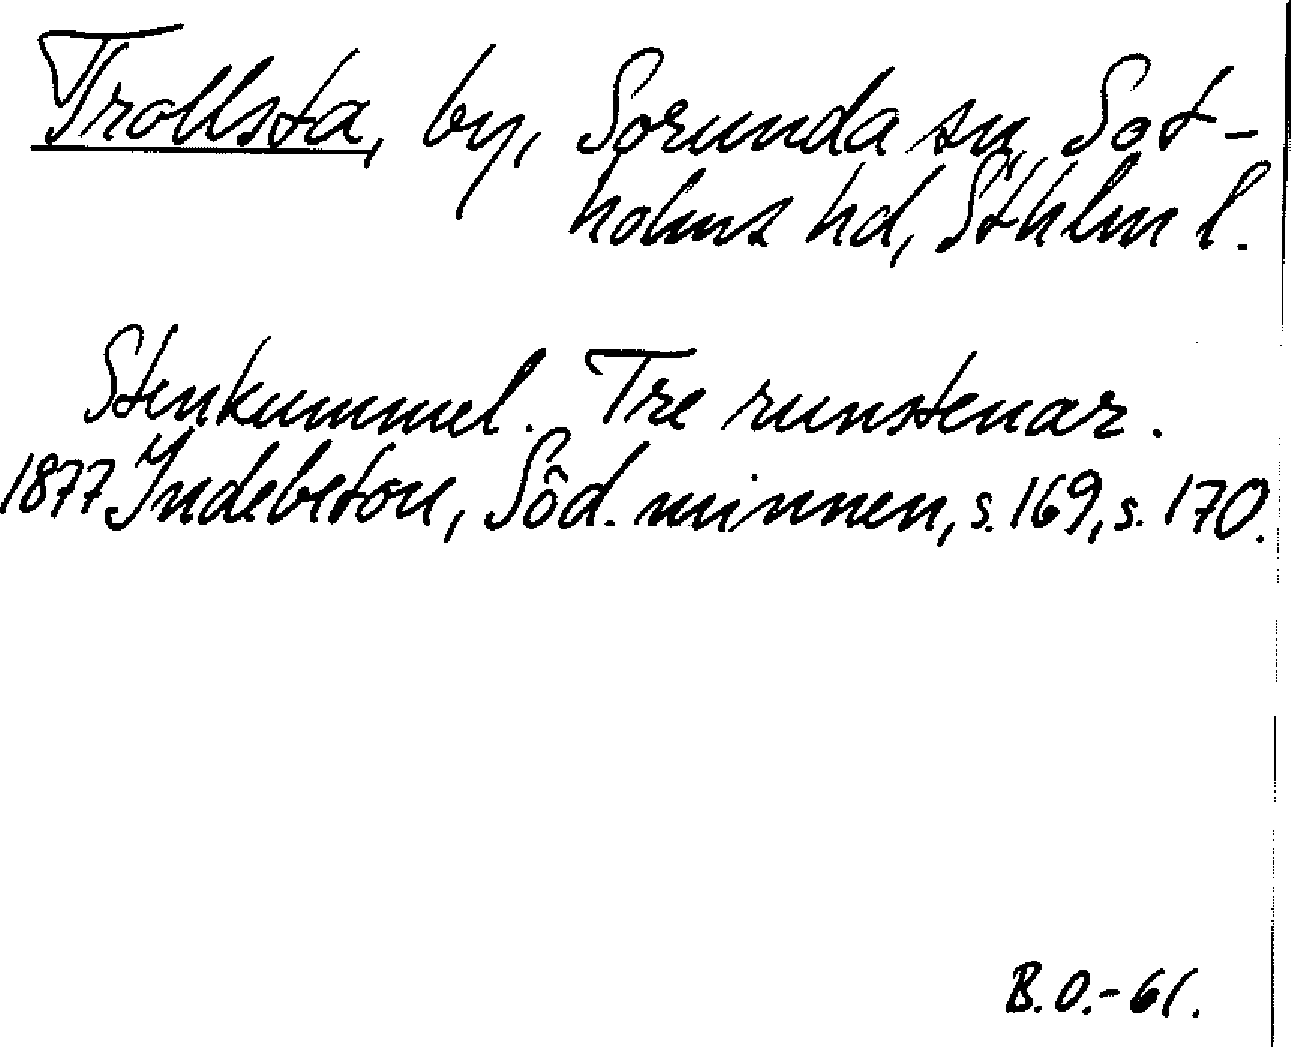 Trollsta, by, Sorunda sn, Sot-
holms hd, Sthlm l.
Stenkummel. Tre runstenar.
1877 Indebetou, Söd. minnen, s. 169, s. 170.
B.O.-61.